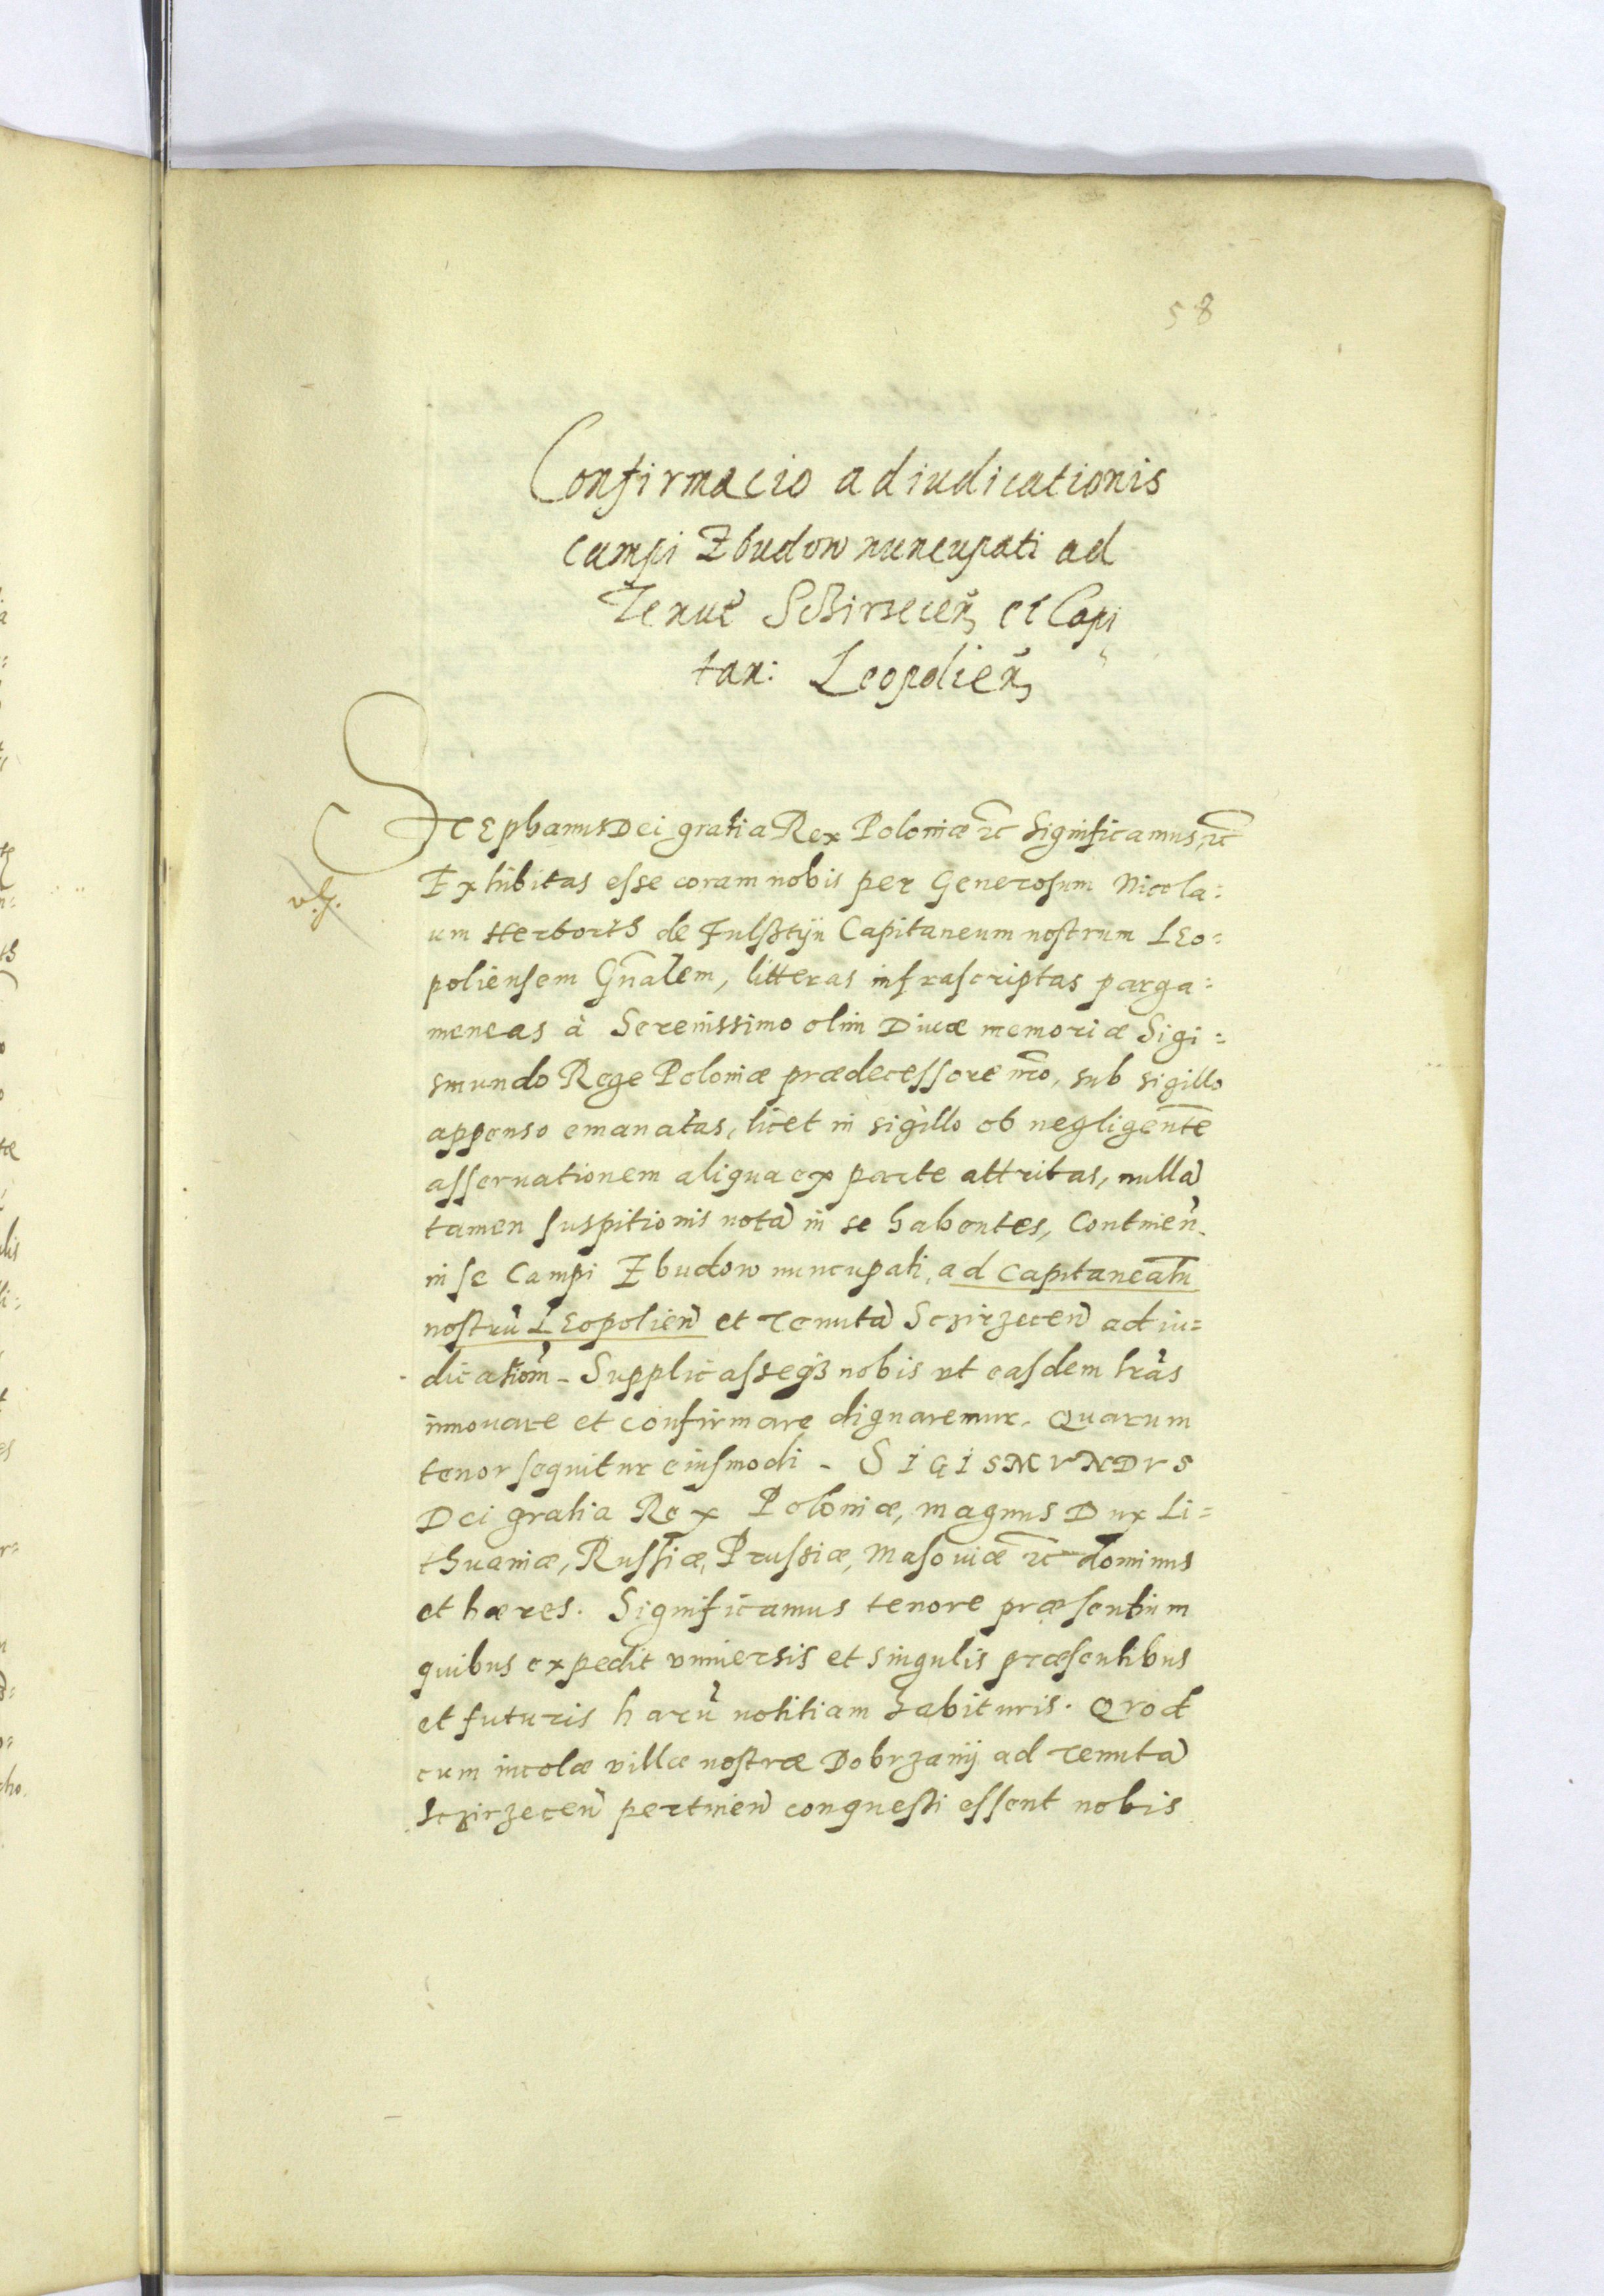 58
Confirmacio adiudicationis
campi Zbudow nuncupati ad
Tenut̃ Sczirzeceñ et Capi
tan: Leopolieñ
Stephanus Dei gratia Rex Poloniæ etc̃ Significamus, etc̃
Exhibitas esse coram nobis per Generosum Nicola=
um Herborth de Fulsztijn Capitaneum nostrum Leo=
poliensem Gñalem, litteras infrascriptas parga=
meneas à Serenissimo olim Diuæ memoriæ Sigi=
smundo Rege Poloniæ prædecessore nr̃o, sub sigillo
appenso emanatas, licet in sigillo ob negligente̅
asseruationem aliqua ex parte attritas, nulla̅
tamen suspitionis nota̅ in se habentes, Continen̅.
in se Campi Zbudow nuncupati, ad Capitaneatu̅
nostru̅ Leopolien̅ et Tenuta̅ Sczirzecen̅ adiu=
dication̅m - Supplicasseqꝫ nobis vt easdem lr̃as
innouare et confirmare dignaremur. Quarum
tenor sequitur eiusmodi - SIGISMVNDVS
Dei gratia Rex Poloniæ, Magnus Dux Li=
thuaniæ, Russiæ, Prussiæ, Masouiæ etc̃ dominus
et hæres. Significamus tenore præsentium
quibus expedit vniuersis et singulis præsentibus
et futuris haru̅ notitiam habituris. Qvod
cum incolæ villæ nostræ Dobrzanij ad Tenuta̅
Sczirzecen̅ pertinen̅ conquesti essent nobis